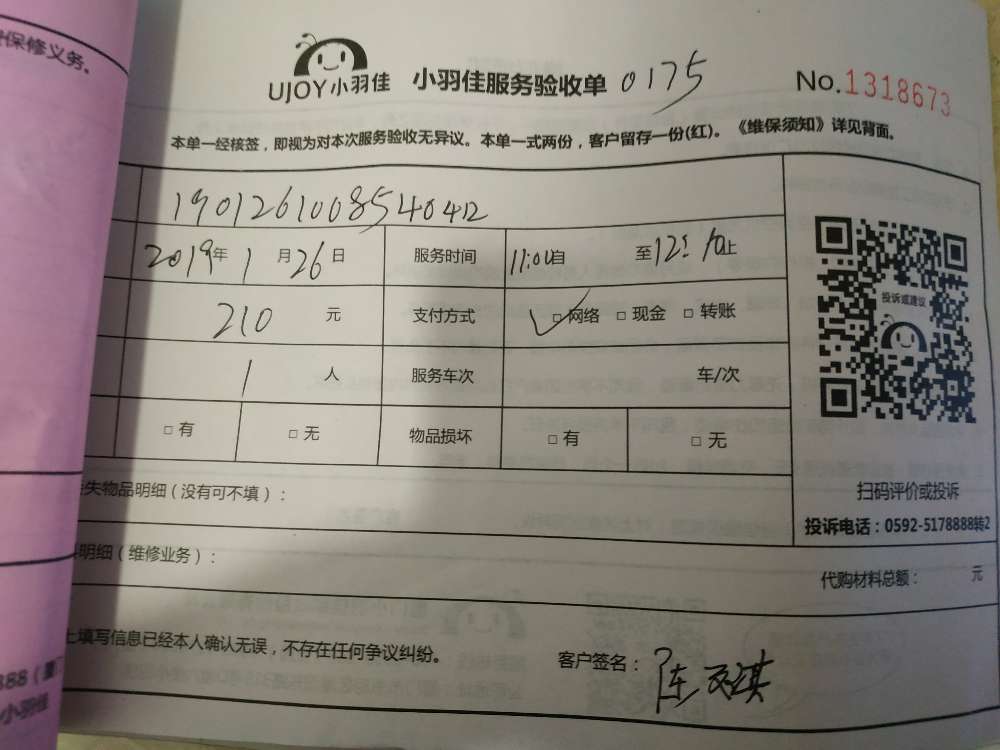 保修义务。
UJOY小羽佳 小羽佳服务验收单 0175 No.1318673
本单一经核签,即视为对本次服务验收无异议。本单一式两份,客户留存一份(红)。《维保须知》详见背面。
19012610085540412
2019年 1月26日 服务时间 11:00自 至12: 止
210 元 支付方式 ✓□网络 □现金 □转账
1 人 服务车次 车/次
□有 □无 物品损坏 □有 □无
投诉或建议
扫码评价或投诉
投诉电话:0592-5178888转2
失物品明细(没有可不填):
明细(维修业务):
代购材料总额: 元
上填写信息已经本人确认无误,不存在任何争议纠纷。
客户签名:陈 淇
888(
小羽佳